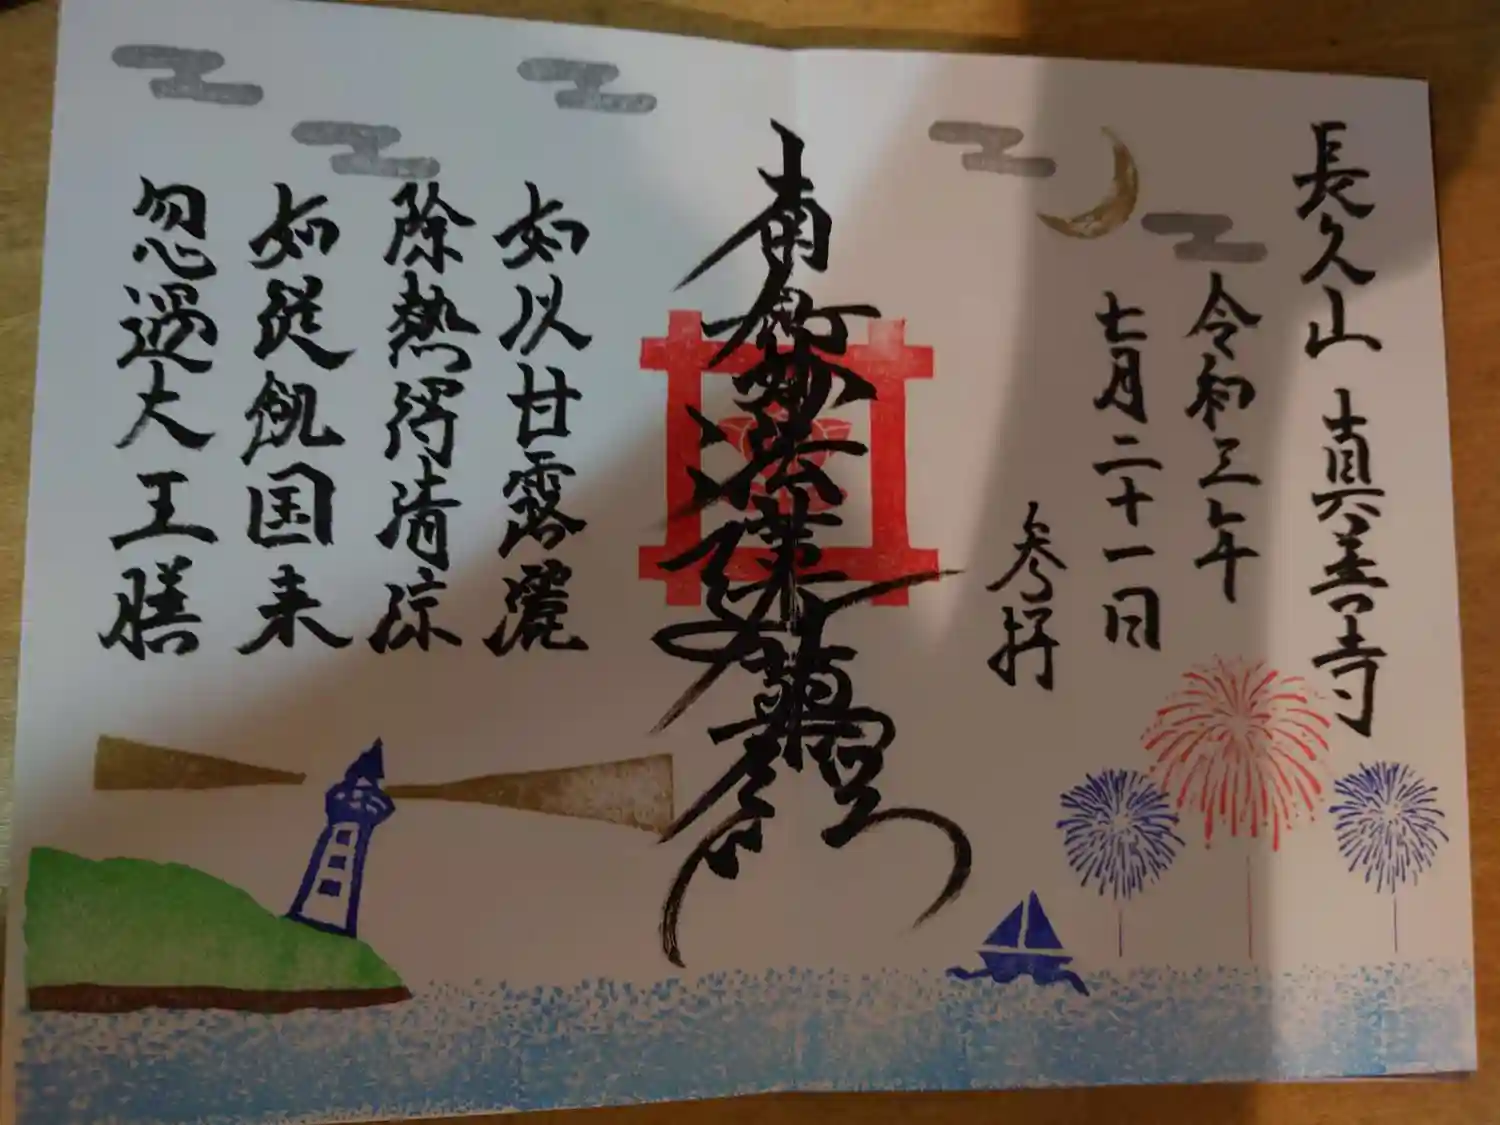 長久山 真善寺
令和三年
七月二十一日
参拝
南無妙法蓮華経
如以甘露灑
除熱得清涼
如従飢国来
忽遇大王膳